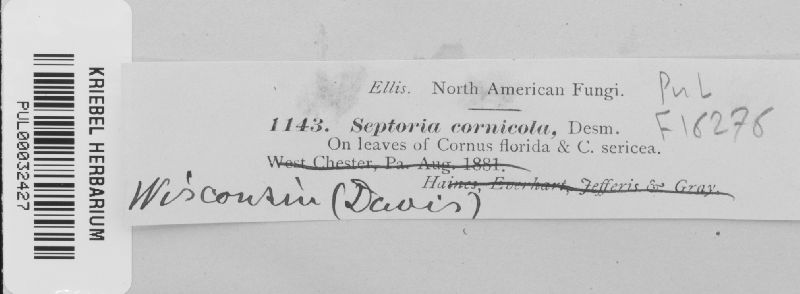 KRIEBEL HERBARIUM
PUL00032427
Ellis. North American Fungi.
PuL
F16276
1143. Septoria cornicola, Desm.
On leaves of Cornus florida & C. sericea.
West Chester, Pa. Aug. 1881.
Haines, Everhart, Jefferis & Gray.
Wisconsin (Davis)